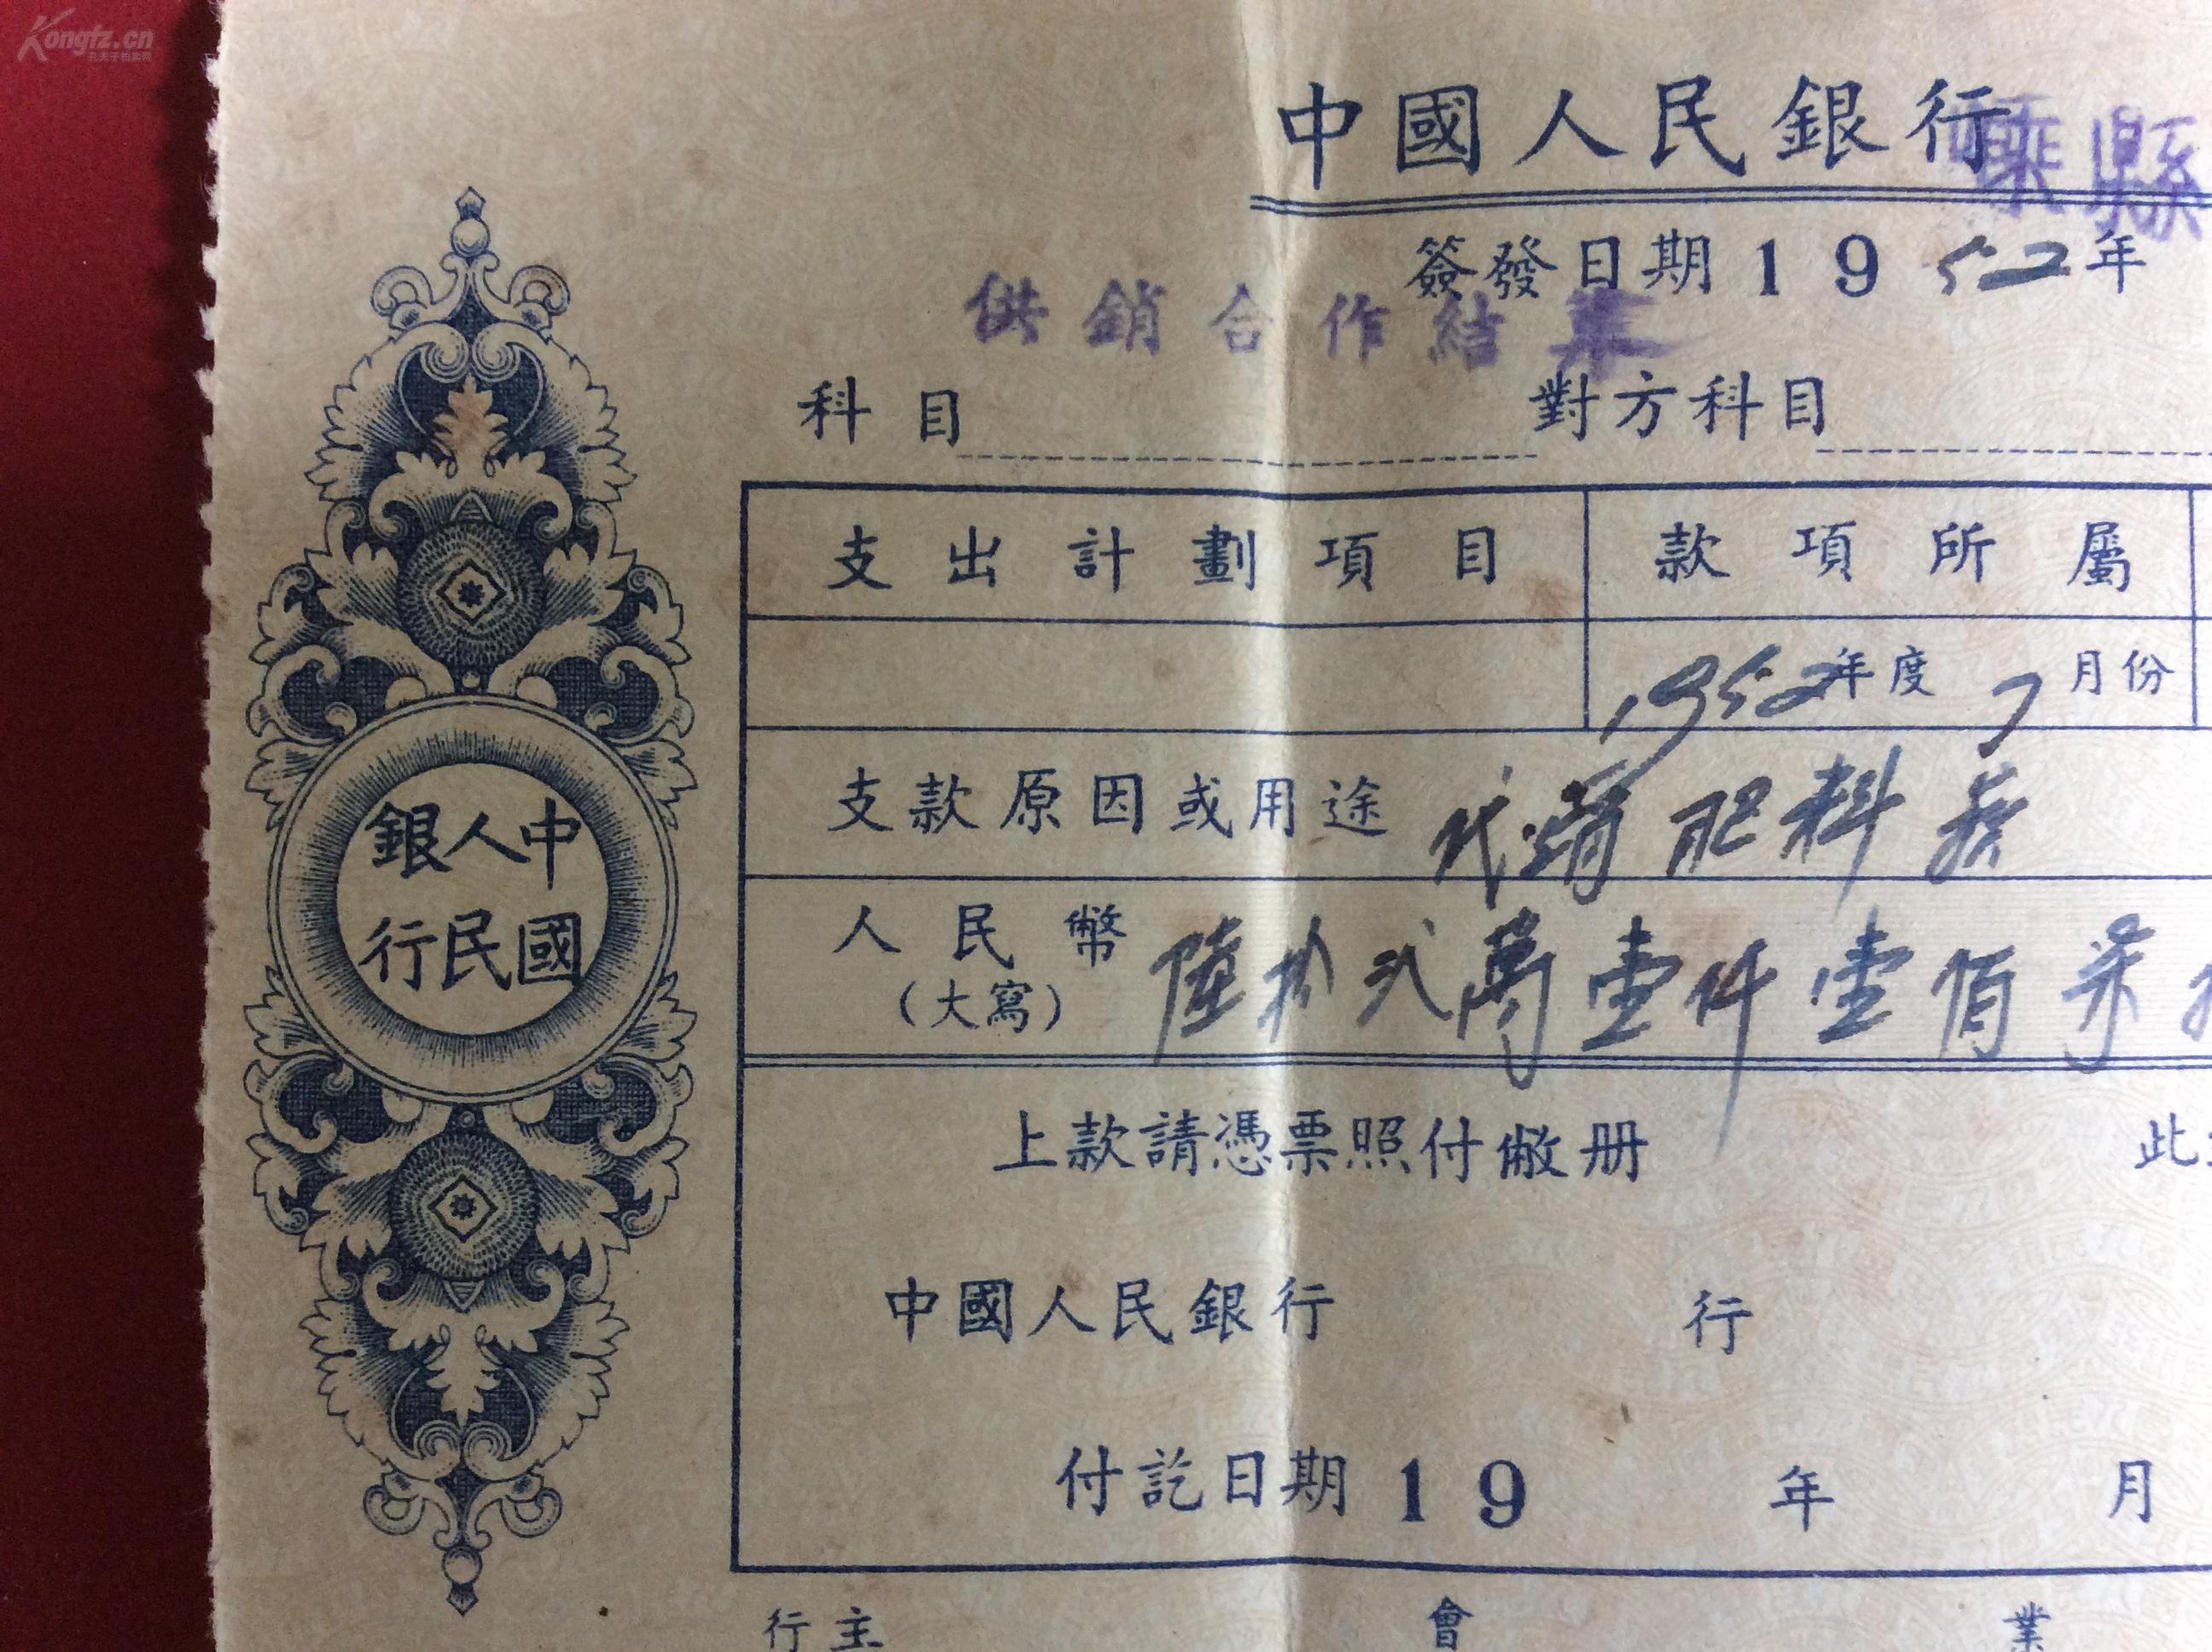 Kongfz.cn
孔夫子拍卖网
中國人民銀行
縣
簽發日期1952年
供銷合作結
科目
對方科目
支出計劃項目 款項所屬
1952年度7月份
支款原因或用途 代銷肥料款
人民幣(大寫) 陸拾弍萬壹仟壹佰柒
上款請憑票照付繳册
此
中國人民銀行 行
付訖日期19 年 月
行主 會 業
中國人民銀行